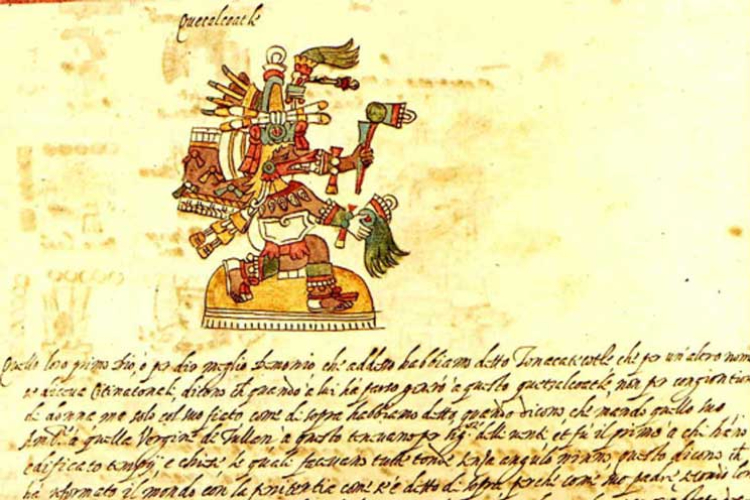 Quetzalcoatle
Quello loro primo dio, o per dir meglio demonio, che addesso habbiamo detto Tonacatecotle che per un'altro nom
se diceua Citinatonali, dicono ch quando a lui ha parso generò a questo quetzalcoatle non per congiontion
di donna ma solo col suo fiato come di sopra habbiamo detto quando dicono che mandò quello suo
a quella Vergine de Tullan a questo teneuano per delli uenti et fu il primo a chi hano
edificato tempij e chiese le quali faceuano tutte tonde senza angulo niuno, questo dicono ch
ha reformato il mondo con la penitentia come se è detto di sopra, perche come suo padre